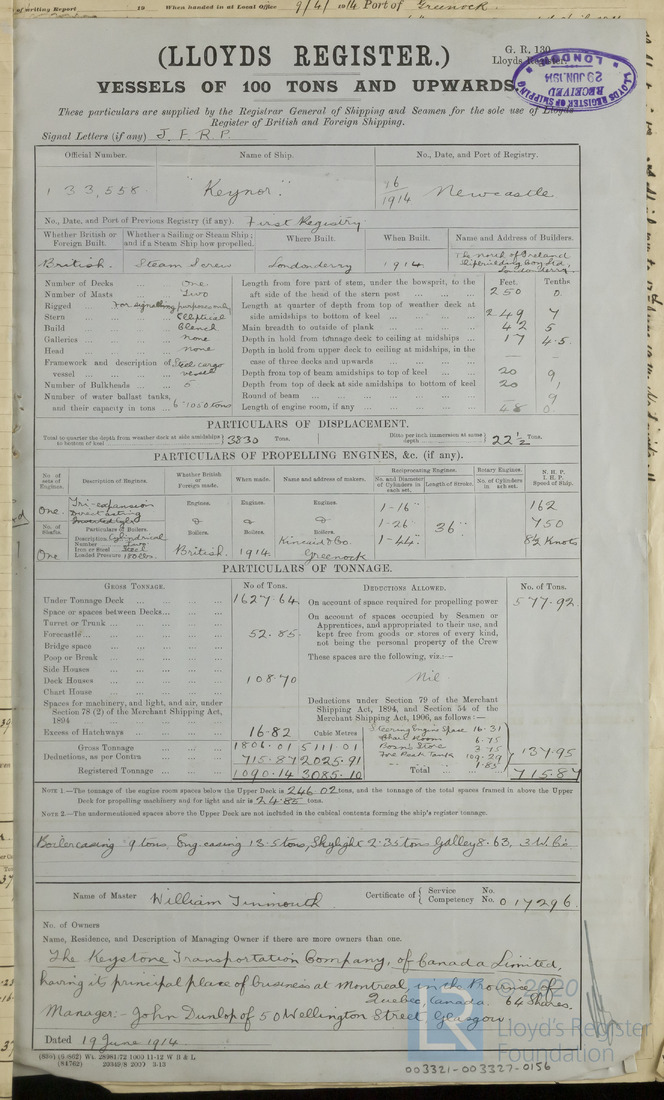 of writing Report 19 When handed in at Local Office 9/4/1914 Port of Greenock.
(LLOYDS REGISTER.)
G. R. 130
Lloyds Register.
VESSELS OF 100 TONS AND UPWARDS.
LLOYDS REGISTER OF SHIPPING
RECEIVED
29 JUN. 1914
LONDON
These particulars are supplied by the Registrar General of Shipping and Seamen for the sole use of Lloyds
Register of British and Foreign Shipping.
Signal Letters (if any) J. F. R. P.
Official Number. Name of Ship. No., Date, and Port of Registry.
133,558. "Keynor." 16/1914 Newcastle
No., Date, and Port of Previous Registry (if any). First Registry.
Whether British or Foreign Built. Whether a Sailing or Steam Ship; and if a Steam Ship how propelled. Where Built. When Built. Name and Address of Builders.
British. Steam Screw Londonderry 1914. The North of Ireland Shipbuilding Coy Ltd, Londonderry
Feet. Tenths.
Number of Decks ... One Length from fore part of stem, under the bowsprit, to the
Number of Masts ... Two aft side of the head of the stern post ... 250 0
Rigged ... For signalling purposes only Length at quarter of depth from top of weather deck at
Stern ... Elliptical side amidships to bottom of keel ... 249 7
Build ... Clench Main breadth to outside of plank ... 42 5
Galleries ... none Depth in hold from tonnage deck to ceiling at midships ... 17 4.5
Head ... none Depth in hold from upper deck to ceiling at midships, in the
Framework and description of Steel cargo case of three decks and upwards ... —
vessel ... vessel Depth from top of beam amidships to top of keel ... 20 9
Number of Bulkheads ... 5 Depth from top of deck at side amidships to bottom of keel 20 1
Number of water ballast tanks, Round of beam ... 9
and their capacity in tons ... 6 1050 tons Length of engine room, if any ... 48 0
PARTICULARS OF DISPLACEMENT.
Total to quarter the depth from weather deck at side amidships to bottom of keel } 3830 Tons. Ditto per inch immersion at same depth } 22 1/2 Tons.
PARTICULARS OF PROPELLING ENGINES, &c. (if any).
No. of sets of Engines. Description of Engines. Whether British or Foreign made. When made. Name and address of makers. Reciprocating Engines. No. and Diameter of Cylinders in each set. Length of Stroke. Rotary Engines. No. of Cylinders in each set. N. H. P. I. H. P. Speed of Ship.
One. Tri-expansion Engines. Engines. Engines. 1-16" 162
Direct acting Inverted Cyls & & & 1-26" 36" 750
No. of Shafts. Particulars of Boilers. Boilers. Boilers. Boilers.
Description Cylindrical Kincaid & Co. 1-44" 8 1/2 Knots
Number Two
Iron or Steel Steel
One Loaded Pressure 180 lbs. British. 1914 Greenock
PARTICULARS OF TONNAGE.
GROSS TONNAGE. No. of Tons. DEDUCTIONS ALLOWED. No. of Tons.
Under Tonnage Deck ... 1627.64 On account of space required for propelling power 577.92
Space or spaces between Decks... On account of spaces occupied by Seamen or
Turret or Trunk ... Apprentices, and appropriated to their use, and
Forecastle ... 52.85 kept free from goods or stores of every kind,
Bridge space not being the personal property of the Crew
Poop or Break ... These spaces are the following, viz.:—
Side Houses
Deck Houses ... 108.70 Nil.
Chart House
Spaces for machinery, and light, and air, under
Section 78 (2) of the Merchant Shipping Act,
1894
Deductions under Section 79 of the Merchant
Shipping Act, 1894, and Section 54 of the
Merchant Shipping Act, 1906, as follows:—
Excess of Hatchways ... 16.82 Cubic Metres
Steering Engine Space 16.31
Chart Room 6.75
Bosn's Store 3.75
Fore Peak Tank 109.29
1.85
137.95
Gross Tonnage 1806.01 5111.01
Deductions, as per Contra 715.87 2025.91
Registered Tonnage 1090.14 3085.10 Total 715.87
NOTE 1.—The tonnage of the engine room spaces below the Upper Deck is 246.02 tons, and the tonnage of the total spaces framed in above the Upper
Deck for propelling machinery and for light and air is 24.85 tons.
NOTE 2.—The undermentioned spaces above the Upper Deck are not included in the cubical contents forming the ship's register tonnage.
Boiler casing 9 tons, Eng. casing 13.5 tons, Skylight 2.35 tons Galley 8.63, 3 W.C's
Name of Master William Tinmouth Certificate of { Service No. Competency No. 017296.
No. of Owners
Name, Residence, and Description of Managing Owner if there are more owners than one.
The Keystone Transportation Company, of Canada Limited,
having its principal place of business at Montreal, in the Province of
Quebec, Canada. 64 Shares.
Manager:- John Dunlop of 50 Wellington Street Glasgow
Dated 19 June 1914.
(84762) 20349/8 2000 3-13
© 2020
LR
Lloyd's Register
Foundation
003321-003327-0156